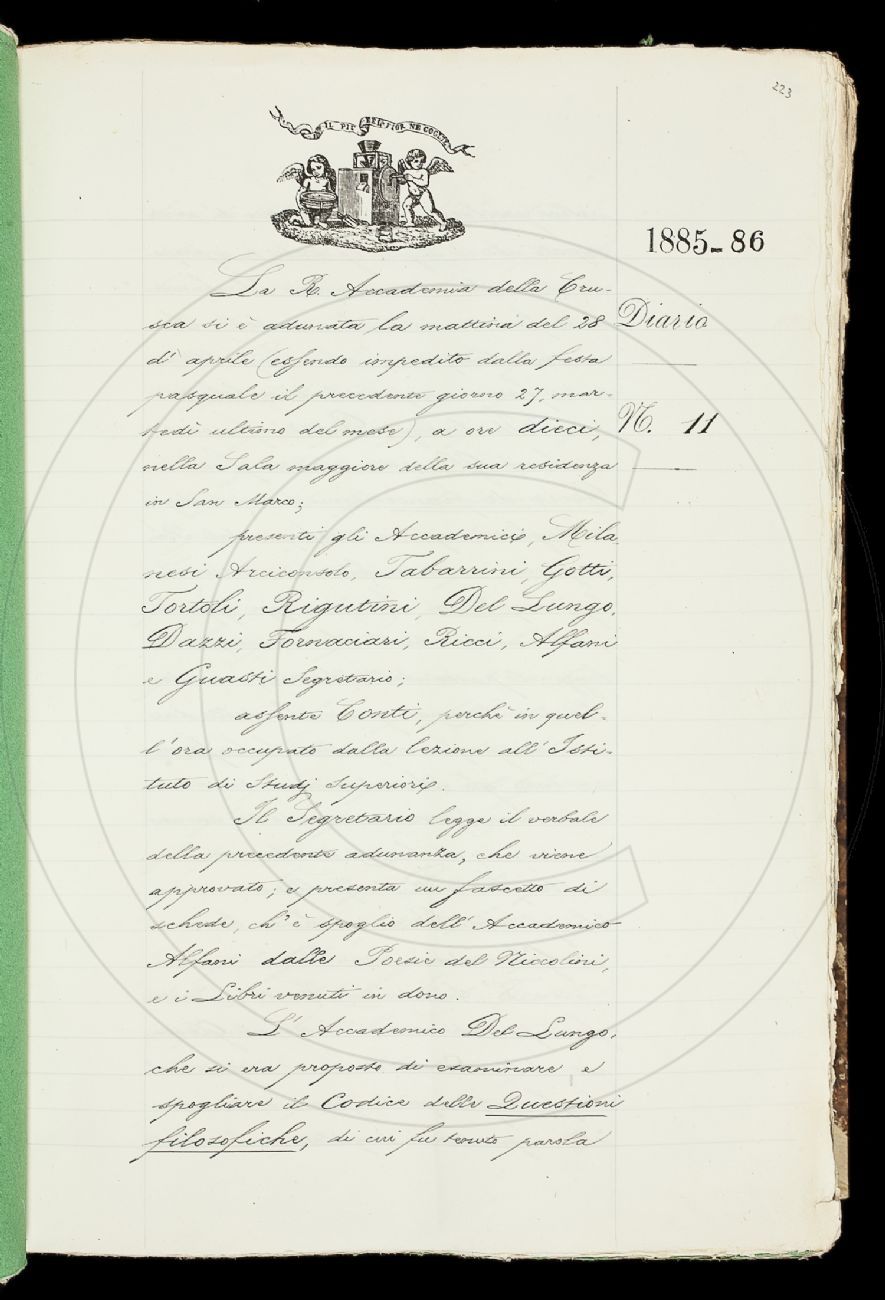 223
IL PIÙ BEL FIOR NE COGLIE
1885-86
Diario
N. 11
La R. Accademia della Cru-
sca si è adunata la mattina del 28
d'aprile (essendo impedito dalla festa
pasquale il precedente giorno 27, mar-
tedì ultimo del mese), a ore dieci,
nella Sala maggiore della sua residenza
in San Marco;
presenti gli Accademici, Mila
nesi Arciconsolo, Tabarrini, Gotti,
Tortoli, Rigutini, Del Lungo,
Dazzi, Fornaciari, Ricci, Alfani
e Guasti Segretario;
assente Conti, perchè in quel-
l'ora occupato dalla lezione all'Isti-
tuto di Studj superiori.
Il Segretario legge il verbale
della precedente adunanza, che viene
approvato; e presenta un fascetto di
schede, ch'è spoglio dell'Accademico
Alfani dalle Poesie del Niccolini,
e i Libri venuti in dono.
L'Accademico Del Lungo,
che si era proposto di esaminare e
spogliare il Codice delle Questioni
filosofiche, di cui fu tenuto parola